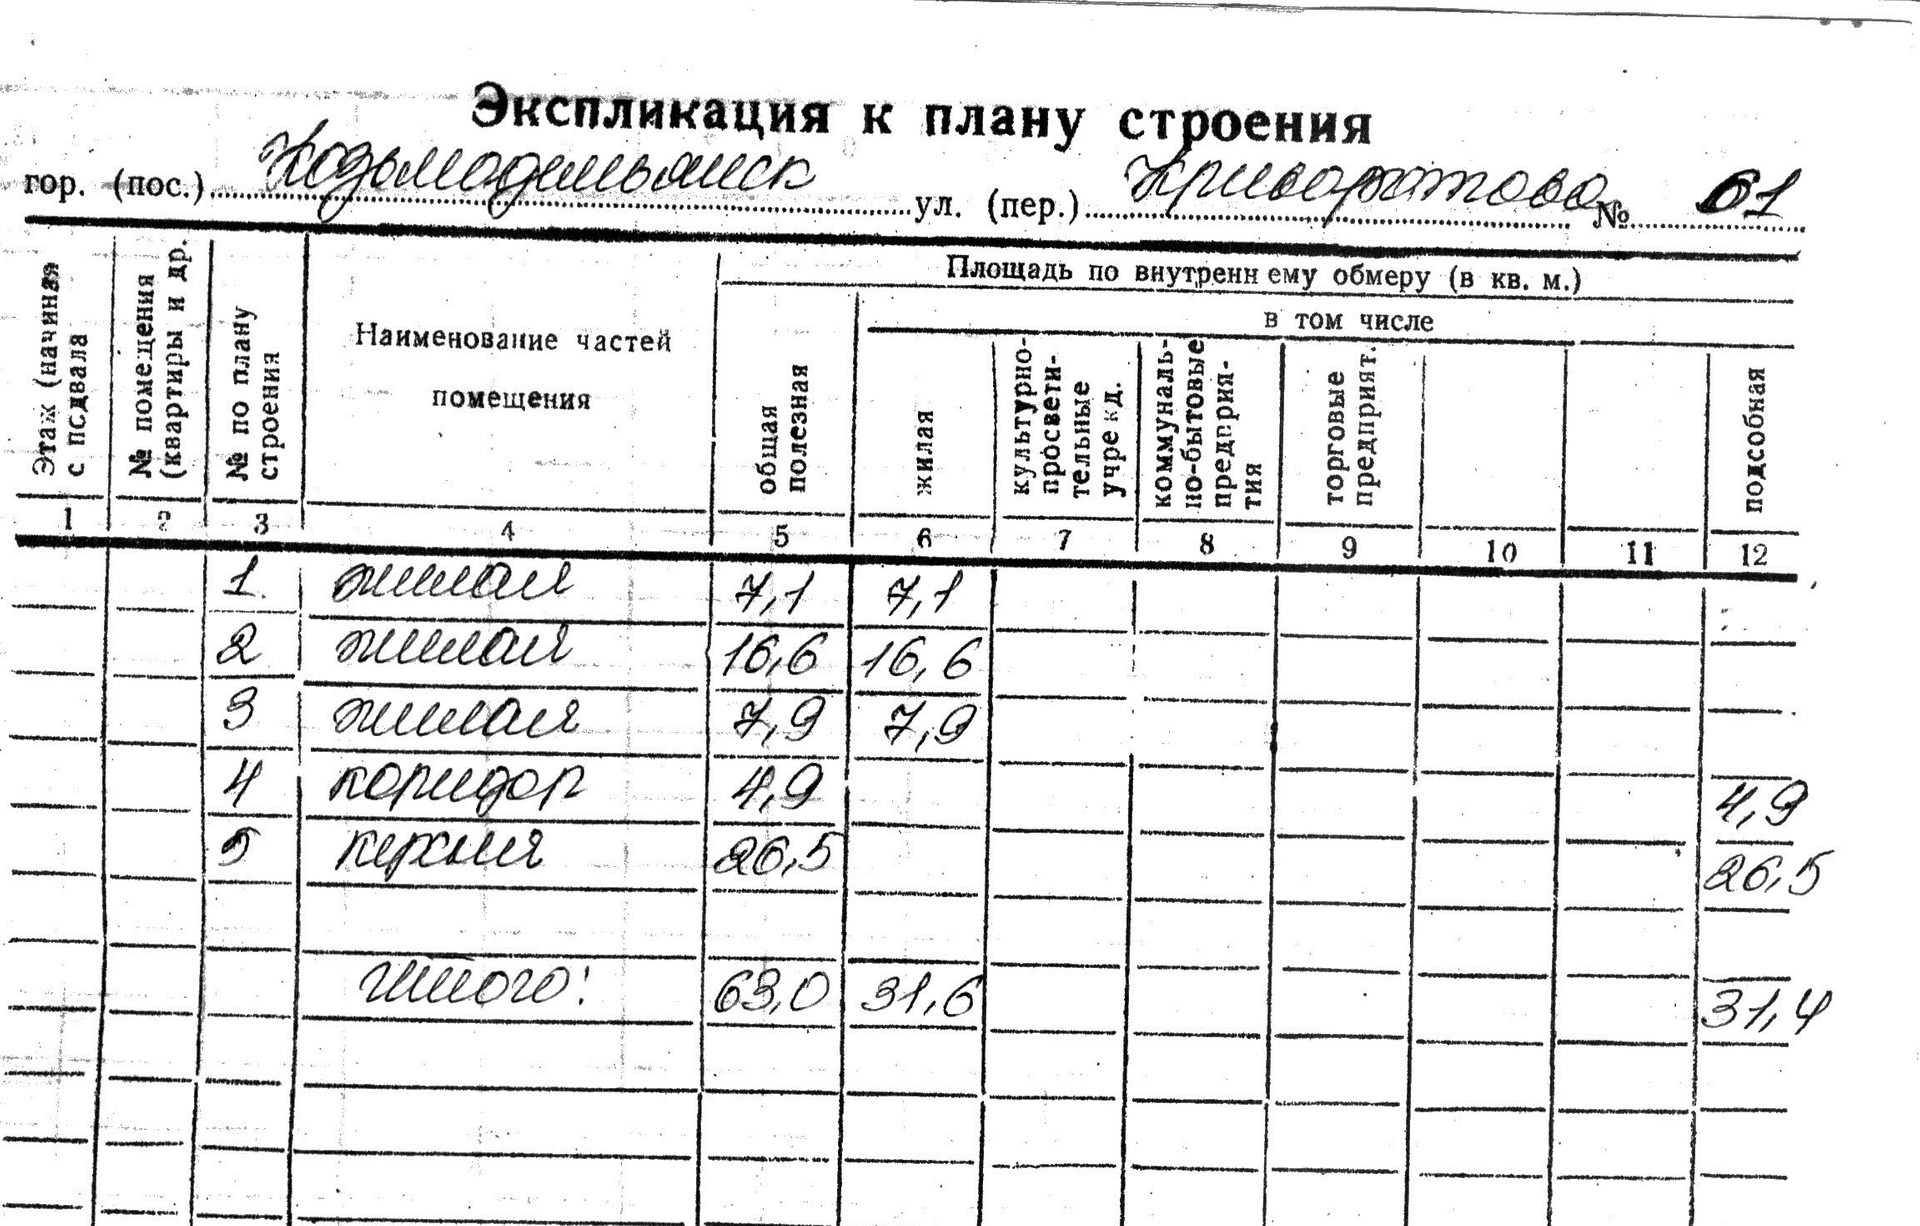 Экспликация к плану строения
гор. (пос.) Козьмодемьянск ул. (пер.) Криворотова № 61
Этаж (начиная с подвала
№ помещения (квартиры и др.
№ по плану строения
Наименование частей помещения
Площадь по внутреннему обмеру (в кв. м.)
в том числе
общая полезная
жилая
культурно-просветительные учрежд.
коммунально-бытовые предприятия
торговые предприят.
подсобная
1 2 3 4 5 6 7 8 9 10 11 12
1 жилая 7,1 7,1
2 жилая 16,6 16,6
3 жилая 7,9 7,9
4 коридор 4,9 4,9
5 кухня 26,5 26,5
Итого: 63,0 31,6 31,4